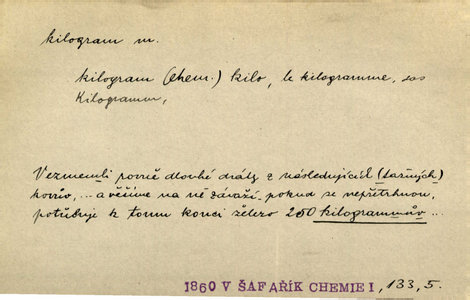 kilogram m.
kilogram (chem.) kilo, le kilogramme, das
Kilogramm,
Vezmemeli rovně dlouhé dráty z následujících (tažných)
kovův, ... a věšíme na ně závaží pokud se nepřetrhnou,
potřebuje k tomu konci železo 250 kilogrammův ...
1860 V ŠAFAŘÍK CHEMIE I, 133, 5.